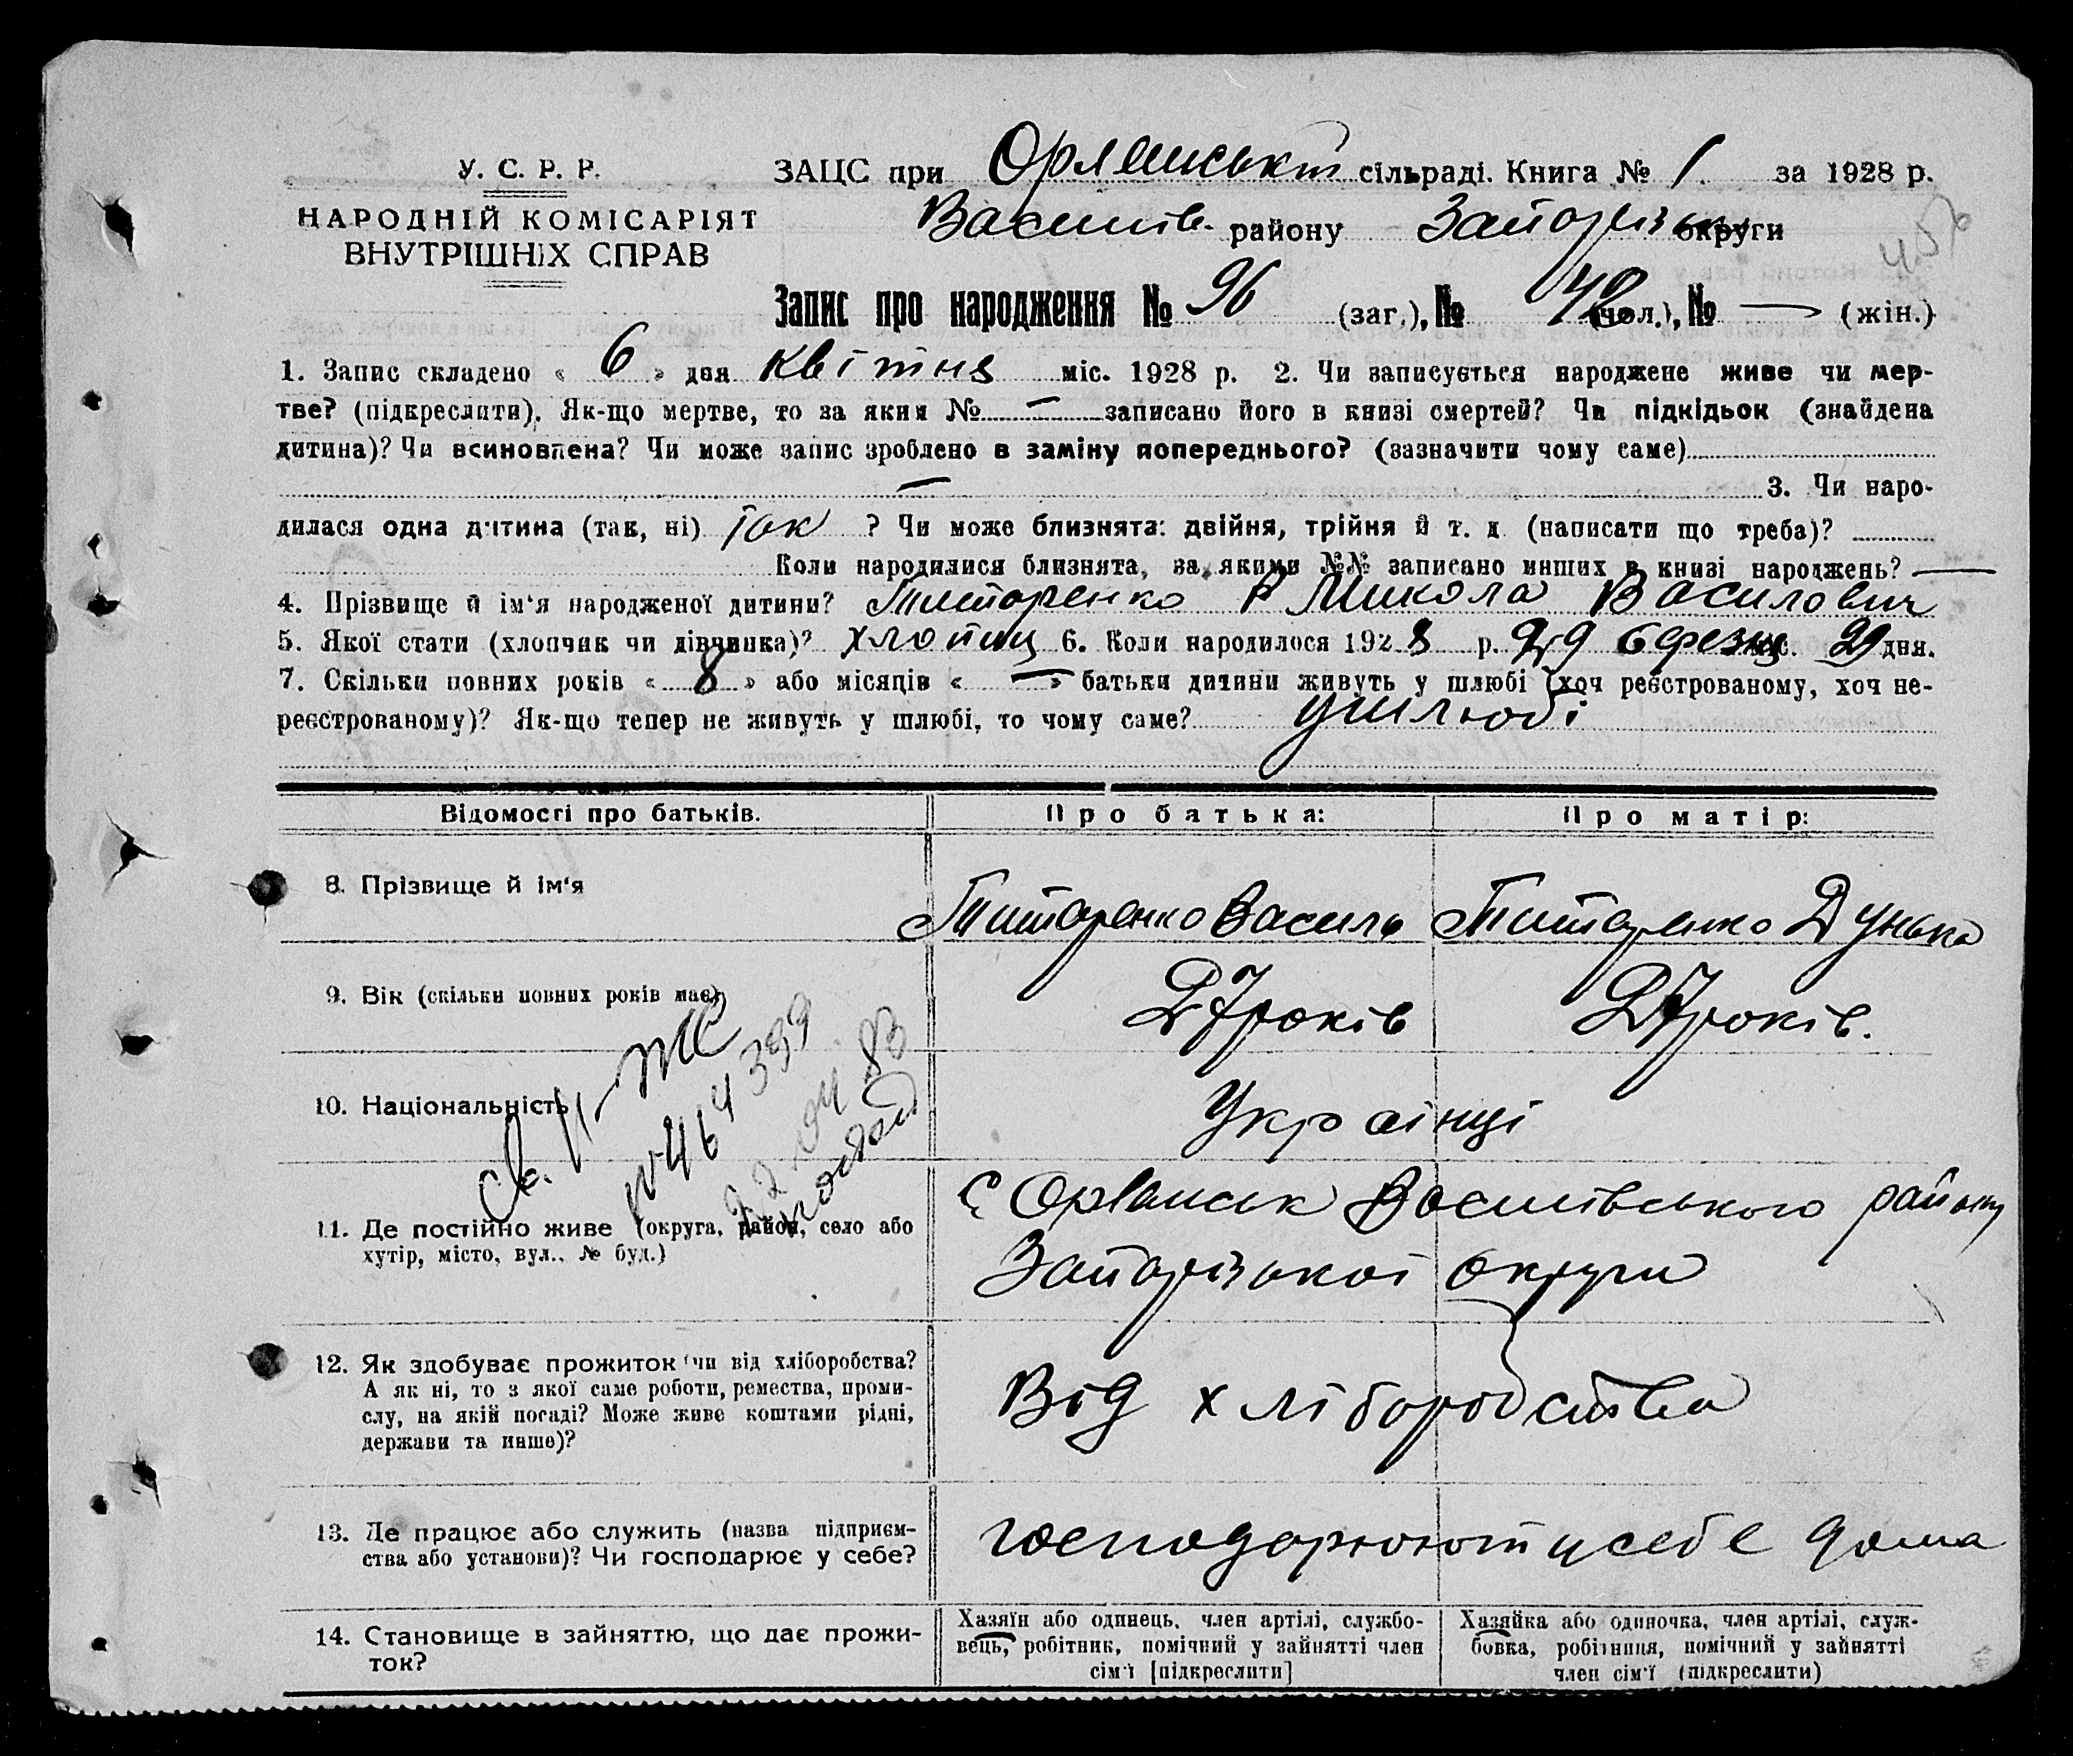 У. С. Р. Р.
НАРОДНІЙ КОМІСАРІЯТ
ВНУТРІШНІХ СПРАВ
ЗАЦС при Орлянській сільраді. Книга № 1 за 1928 р.
Василів. району Запорізьк округи
Запис про народження № 96 (заг.), № (чол.), № — (жін.)
1. Запис складено « 6 » дня квітня міс. 1928 р. 2. Чи записується народжене живе чи мер-
тве? (підкреслити). Як-що мертве, то за яким № — записано його в книзі смертей? Чи підкідьок (знайдена
дитина)? Чи всиновлена? Чи може запис зроблено в заміну попереднього? (зазначити чому саме)
— 3. Чи наро-
дилася одна дитина (так, ні) так ? Чи може близнята: двійня, трійня й т. д (написати що треба)?
Коли народилися близнята, за якими №№ записано инших в книзі народжень? —
4. Прізвище й ім'я народженої дитини? Титаренко Микола Василович
5. Якої стати (хлопчик чи дівчинка)? хлопиц 6. Коли народилося 1928 р. 29 березня міс. 29 дня.
7. Скільки повних років « 8 » або місяців « — » батьки дитини живуть у шлюбі (хоч реєстрованому, хоч не-
реєстрованому)? Як-що тепер не живуть у шлюбі, то чому саме? У шлюбі
Відомості про батьків. Про батька: Про матір:
8. Прізвище й ім'я Титаренко Василь Титаренко Дунька
9. Вік (скільки повних років має) 27 років 27 років.
10. Національність Українці
№ 464399
11. Де постійно живе (округа, район, село або
хутір, місто, вул., № буд.)
С Орлянськ Василівського району
Запорізької округи
12. Як здобуває прожиток (чи від хліборобства?
А як ні, то з якої саме роботи, ремества, проми-
слу, на якій посаді? Може живе коштами рідні,
держави та инше)?
Від хліборобства
13. Де працює або служить (назва підприєм-
ства або установи)? Чи господарює у себе?
господарюют у себе дома
14. Становище в зайняттю, що дає прожи-
ток?
Хазяїн або одинець, член артілі, службо-
вець, робітник, помічний у зайнятті член
сім'ї [підкреслити]
Хазяйка або одиночка, член артілі, служ-
бовка, робітниця, помічний у зайнятті
член сім'ї (підкреслити)